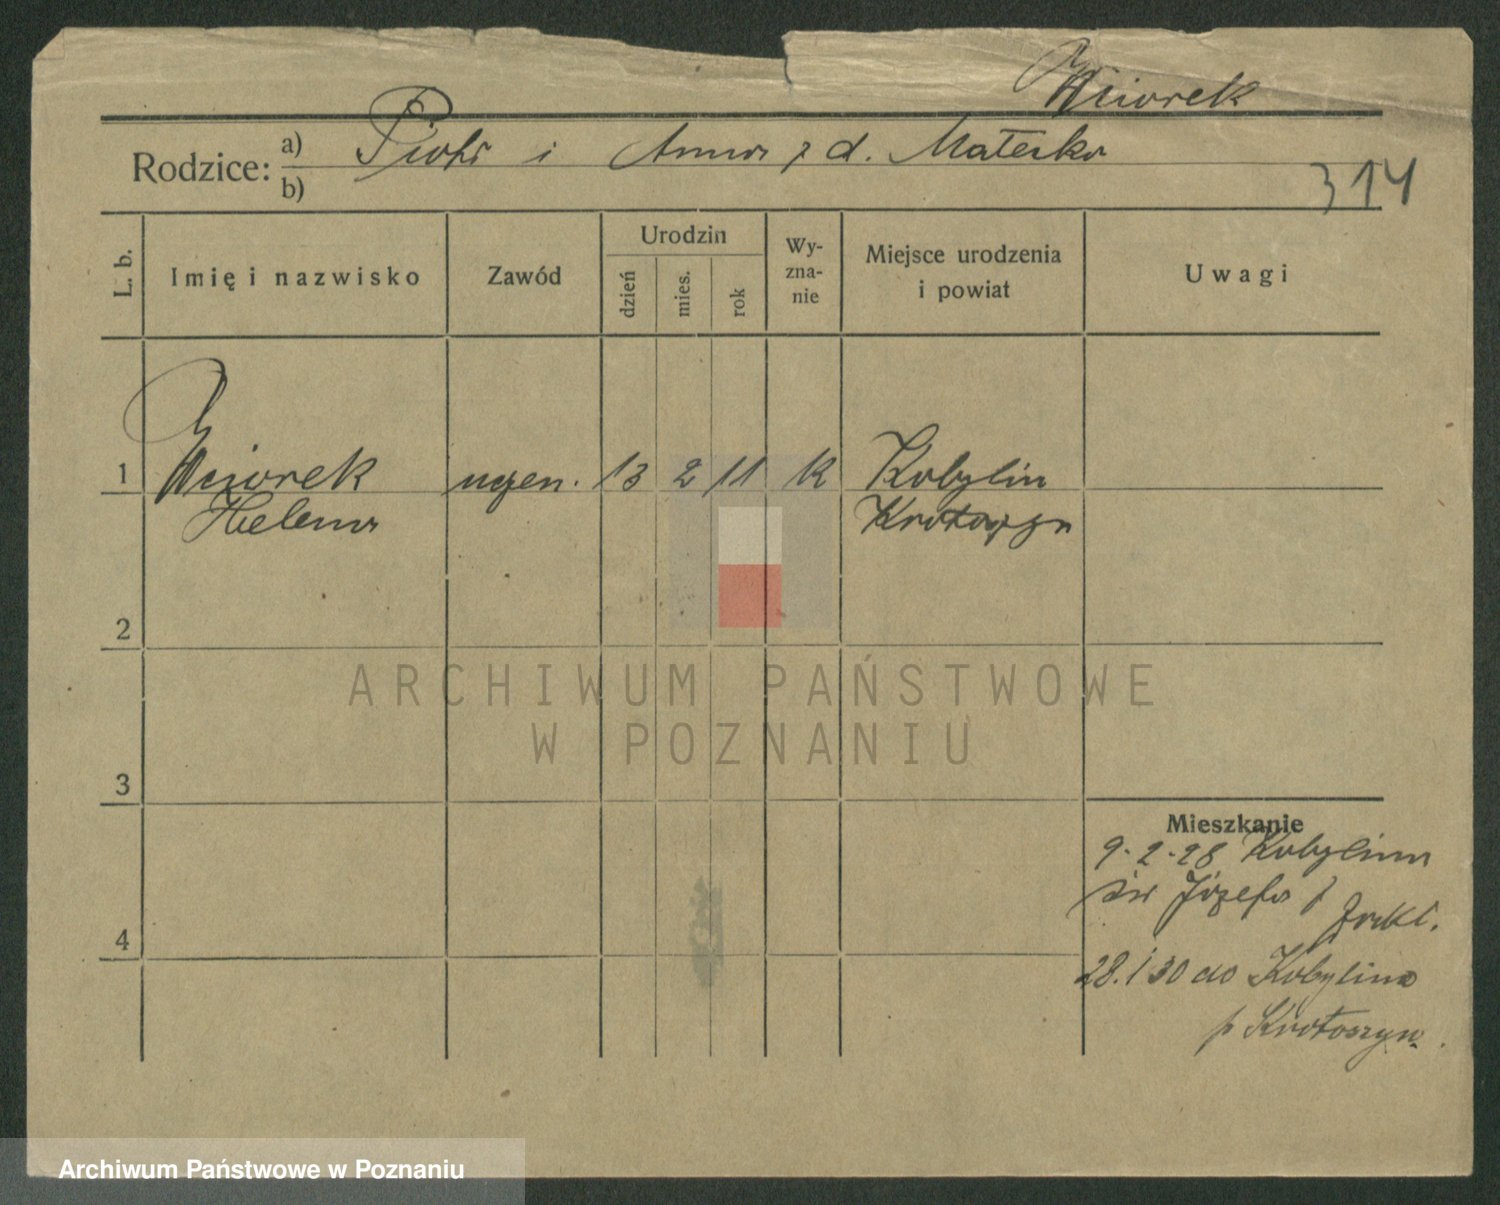 Wciorek
Rodzice: a) Piotr i Anna z d. Matecka
b)
314
L. b.
Imię i nazwisko
Zawód
Urodzin
dzień
mies.
rok
Wy-
zna-
nie
Miejsce urodzenia
i powiat
Uwagi
1 Wciorek uczen. 13 2 11 k Kobylin
Helena Krotoszyn
2
3
4
Mieszkanie
9-2-28 Kobylina
św Józefa
28.1 30 do Kobylina
p Krotoszyn.
ARCHIWUM PAŃSTWOWE
W POZNANIU
Archiwum Państwowe w Poznaniu